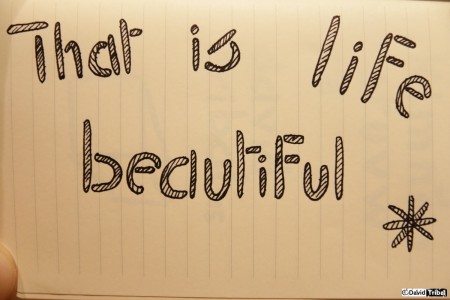 That is life
beautiful *
© David Tribal